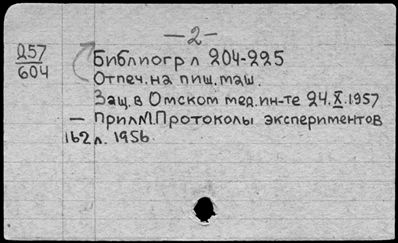 — 2 —
257
604
Библиогр л 204-225
Отпеч. на пиш. маш.
Защ. в Омском мед. ин-те 24.X.1957
— Прил М. Протоколы экспериментов
162 л. 1956